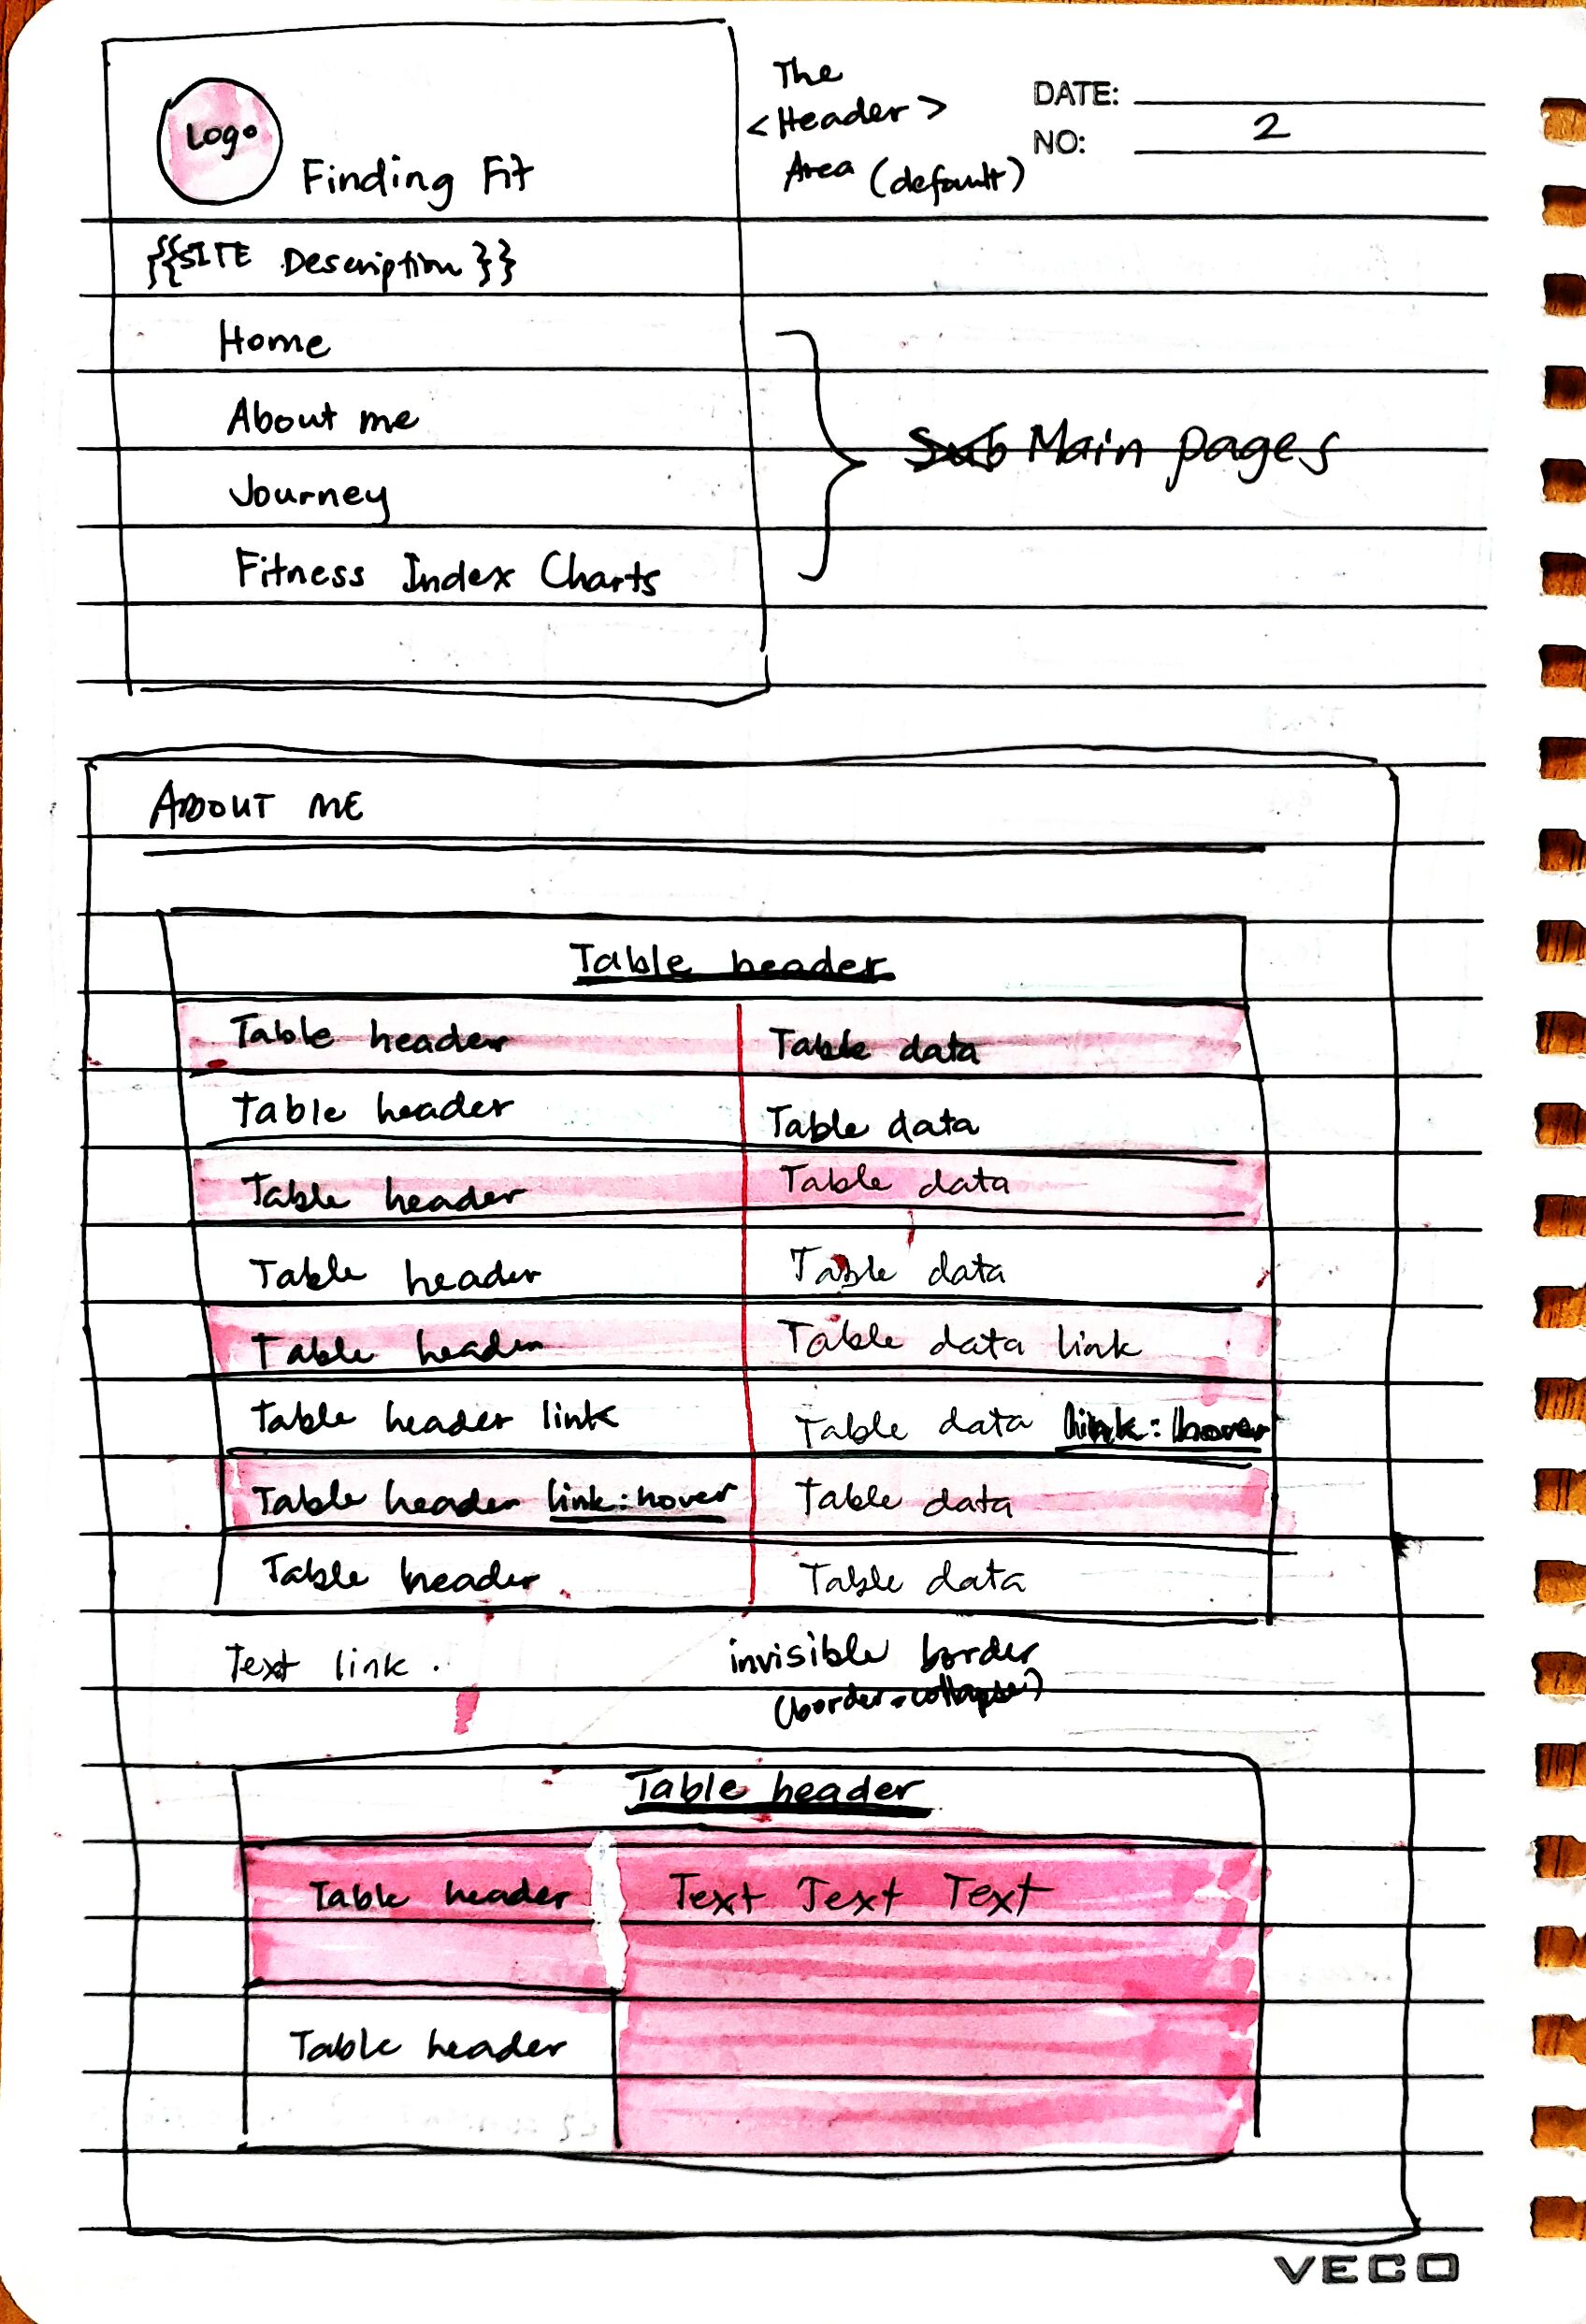 The
<Header>
Area (default)
DATE:
NO: 2
Logo
Finding Fit
{{SITE Description}}
Home
About me
Journey
Fitness Index Charts
Sub Main pages
ABOUT ME
Table header
Table header Table data
Table header Table data
Table header Table data
Table header Table data
Table header Table data link
Table header link Table data link:hover
Table header link:hover Table data
Table header Table data
Text link. invisible border
(border-collapse)
Table header
Table header Text Text Text
Table header
VECO